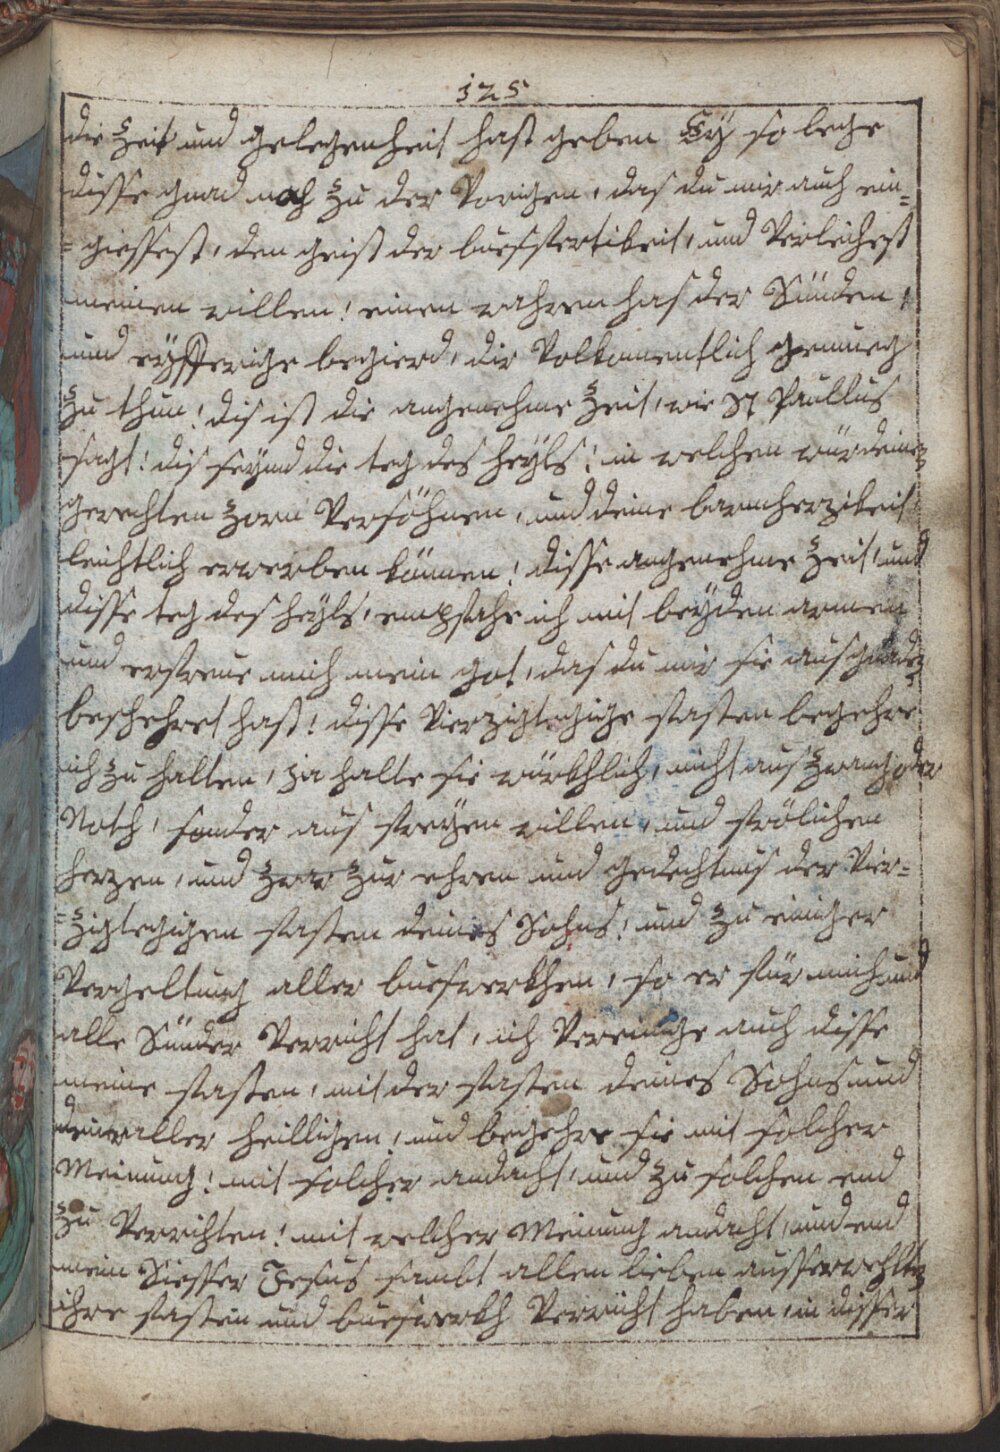 125
die Zeit und gelegenheit hast geben Ey so lege
disse gnad noch zu der Vorigen, das du mir auch ein=
=giessest, den geist der buesfertikeit, und Verleichest
meinen willen! einen wahren has der Sünden,
und eyfferige begierd, dir Volkomentlich genueg
zu thun! dis ist die angenehme Zeit, wie St Paullus
sagt! dis seynd die teg des heyls! in welchen wür deinen
gerechten Zorn Versöhnen, und deine barmherzikeit,
leichtlich erwerben können! disse angenehme Zeit, und
disse teg des heyls, empfahe ich mit beyden armen
und erfreue mich mein got, das du mir sie aus gnaden
beschehret hast! disse Vierzigtegige fasten begehre
ich zu halten, ja halte sie würkhlich, nicht aus zwang oder
Noth, sonder aus freyen willen, und frölichen
herzen, und zwar zur ehren und gedechtnus der Vier=
=zigtegigen fasten deines Sohns! und zu einicher
Vergeltung aller bueswerkhen, so er für mich und
alle Sünder Verricht hat, ich Vereinige auch disse
meine fasten, mit der fasten deines Sohns und
deiner aller heilligen, und begehre sie mit solcher
Meinung! mit solcher andacht, und zu solchen end
zu Verrichten! mit welcher Meinung andacht, und end
mein Siesser Jesus sambt allen lieben ausserwehlten
ihre fasten und bueswerkh Verricht haben, in disser